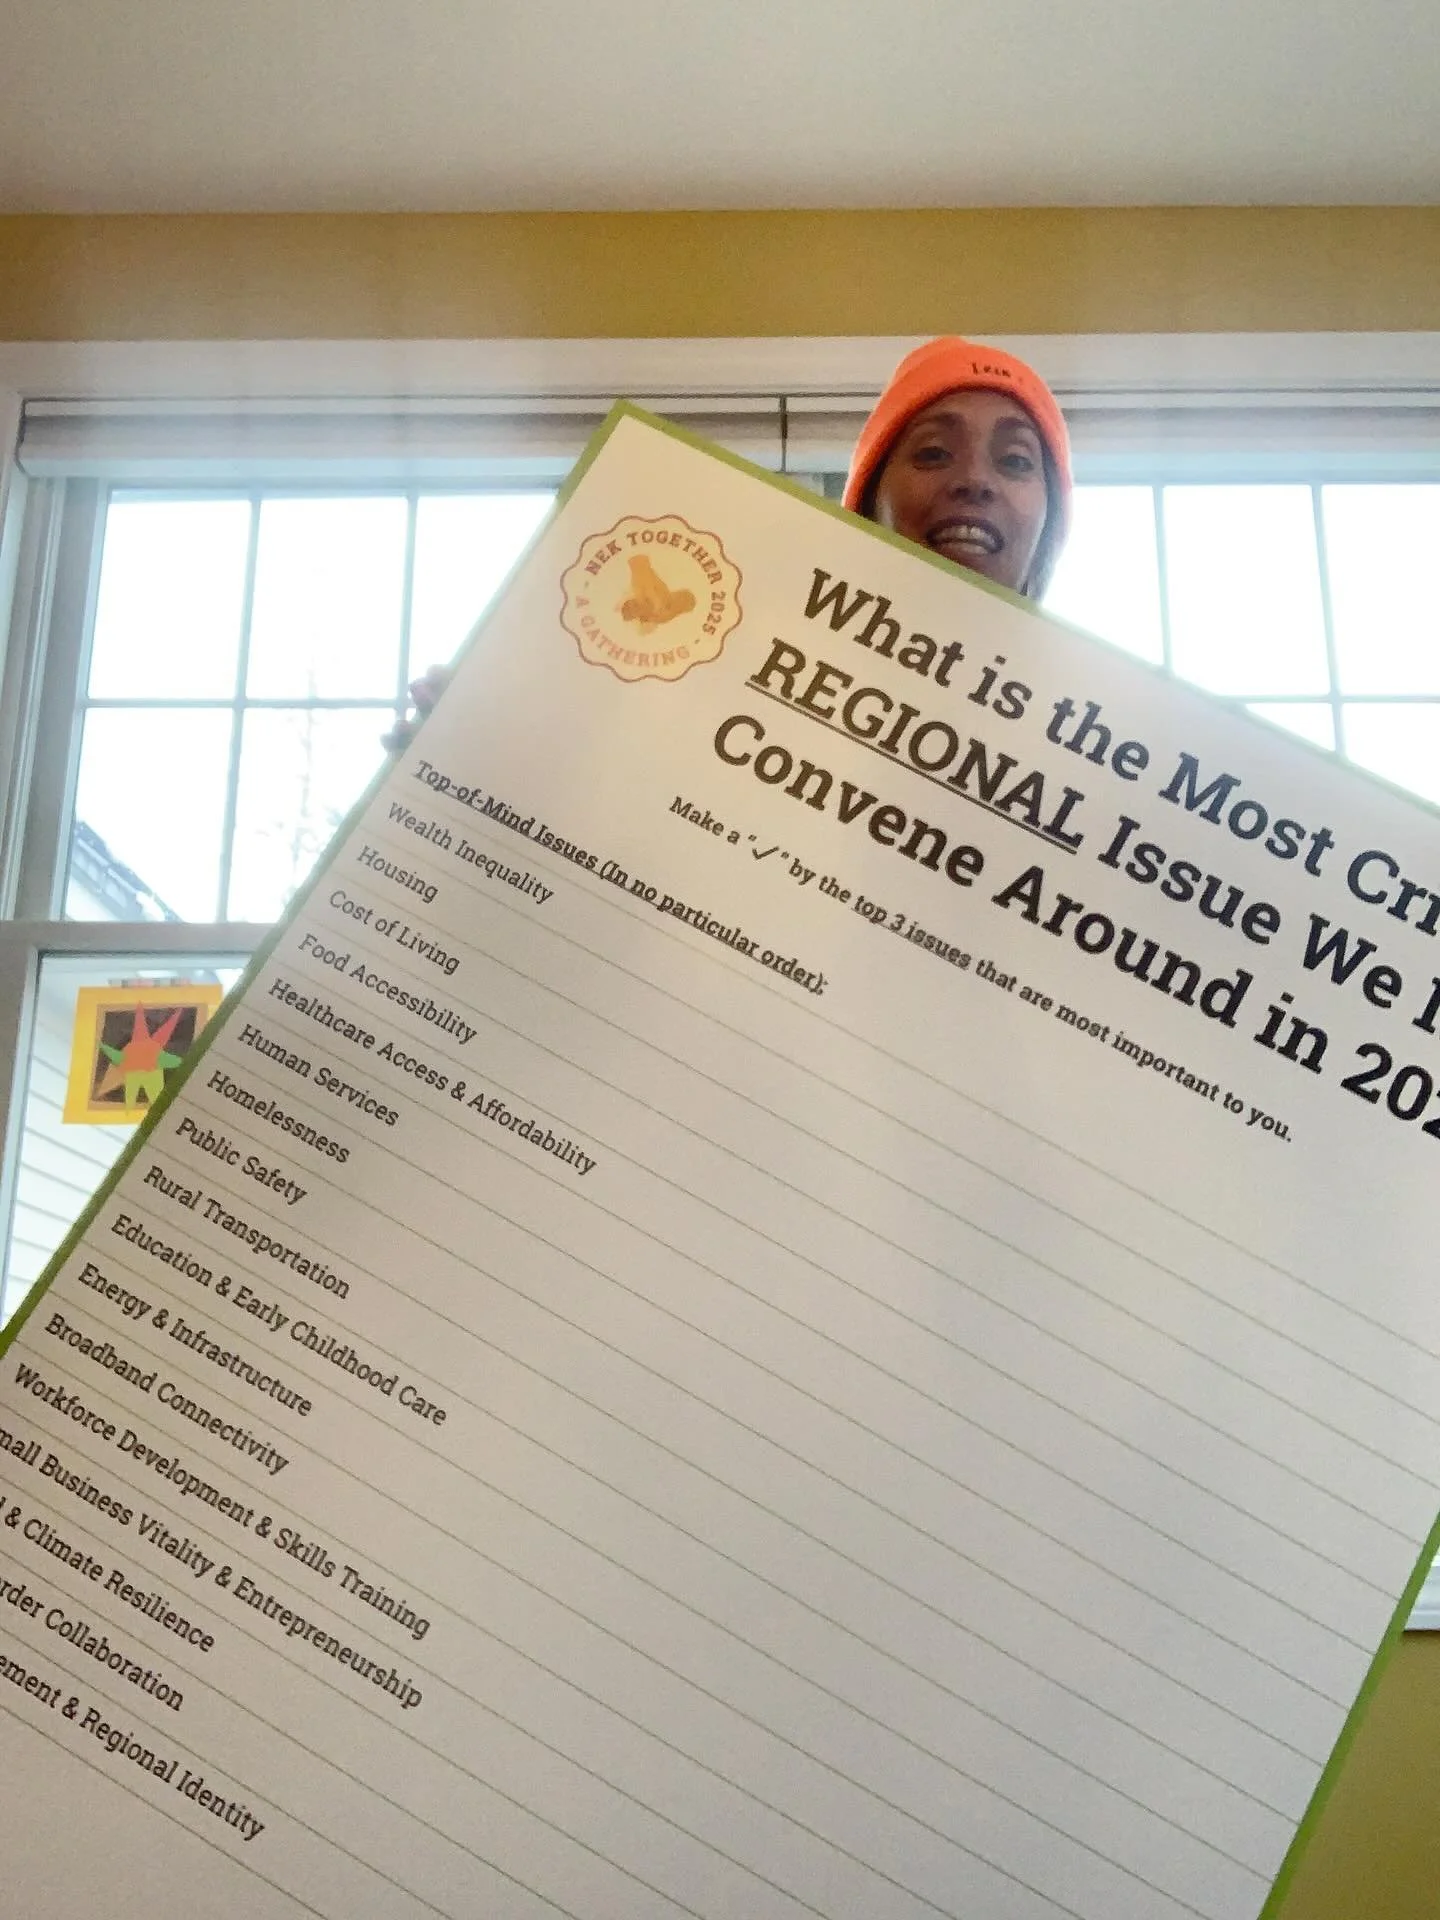 NEK TOGETHER 2025
- A GATHERING -
What is the Most
REGIONAL Issue We
Convene Around in
Make a "✓" by the top 3 issues that are most important to you.
Top-of-Mind Issues (In no particular order):
Wealth Inequality
Housing
Cost of Living
Food Accessibility
Healthcare Access & Affordability
Human Services
Homelessness
Public Safety
Rural Transportation
Education & Early Childhood Care
Energy & Infrastructure
Broadband Connectivity
Workforce Development & Skills Training
Business Vitality & Entrepreneurship
& Climate Resilience
Collaboration
& Regional Identity